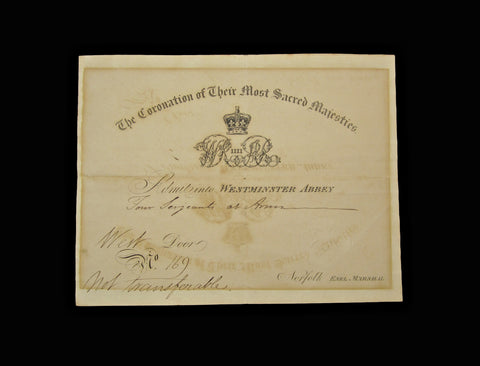 The Coronation of Their Most Sacred Majesties
WR IIII & AR.
Admit into WESTMINSTER ABBEY
Four Sergeants at Arms
West Door
No. 169
Not Transferable.
Norfolk EARL MARSHAL